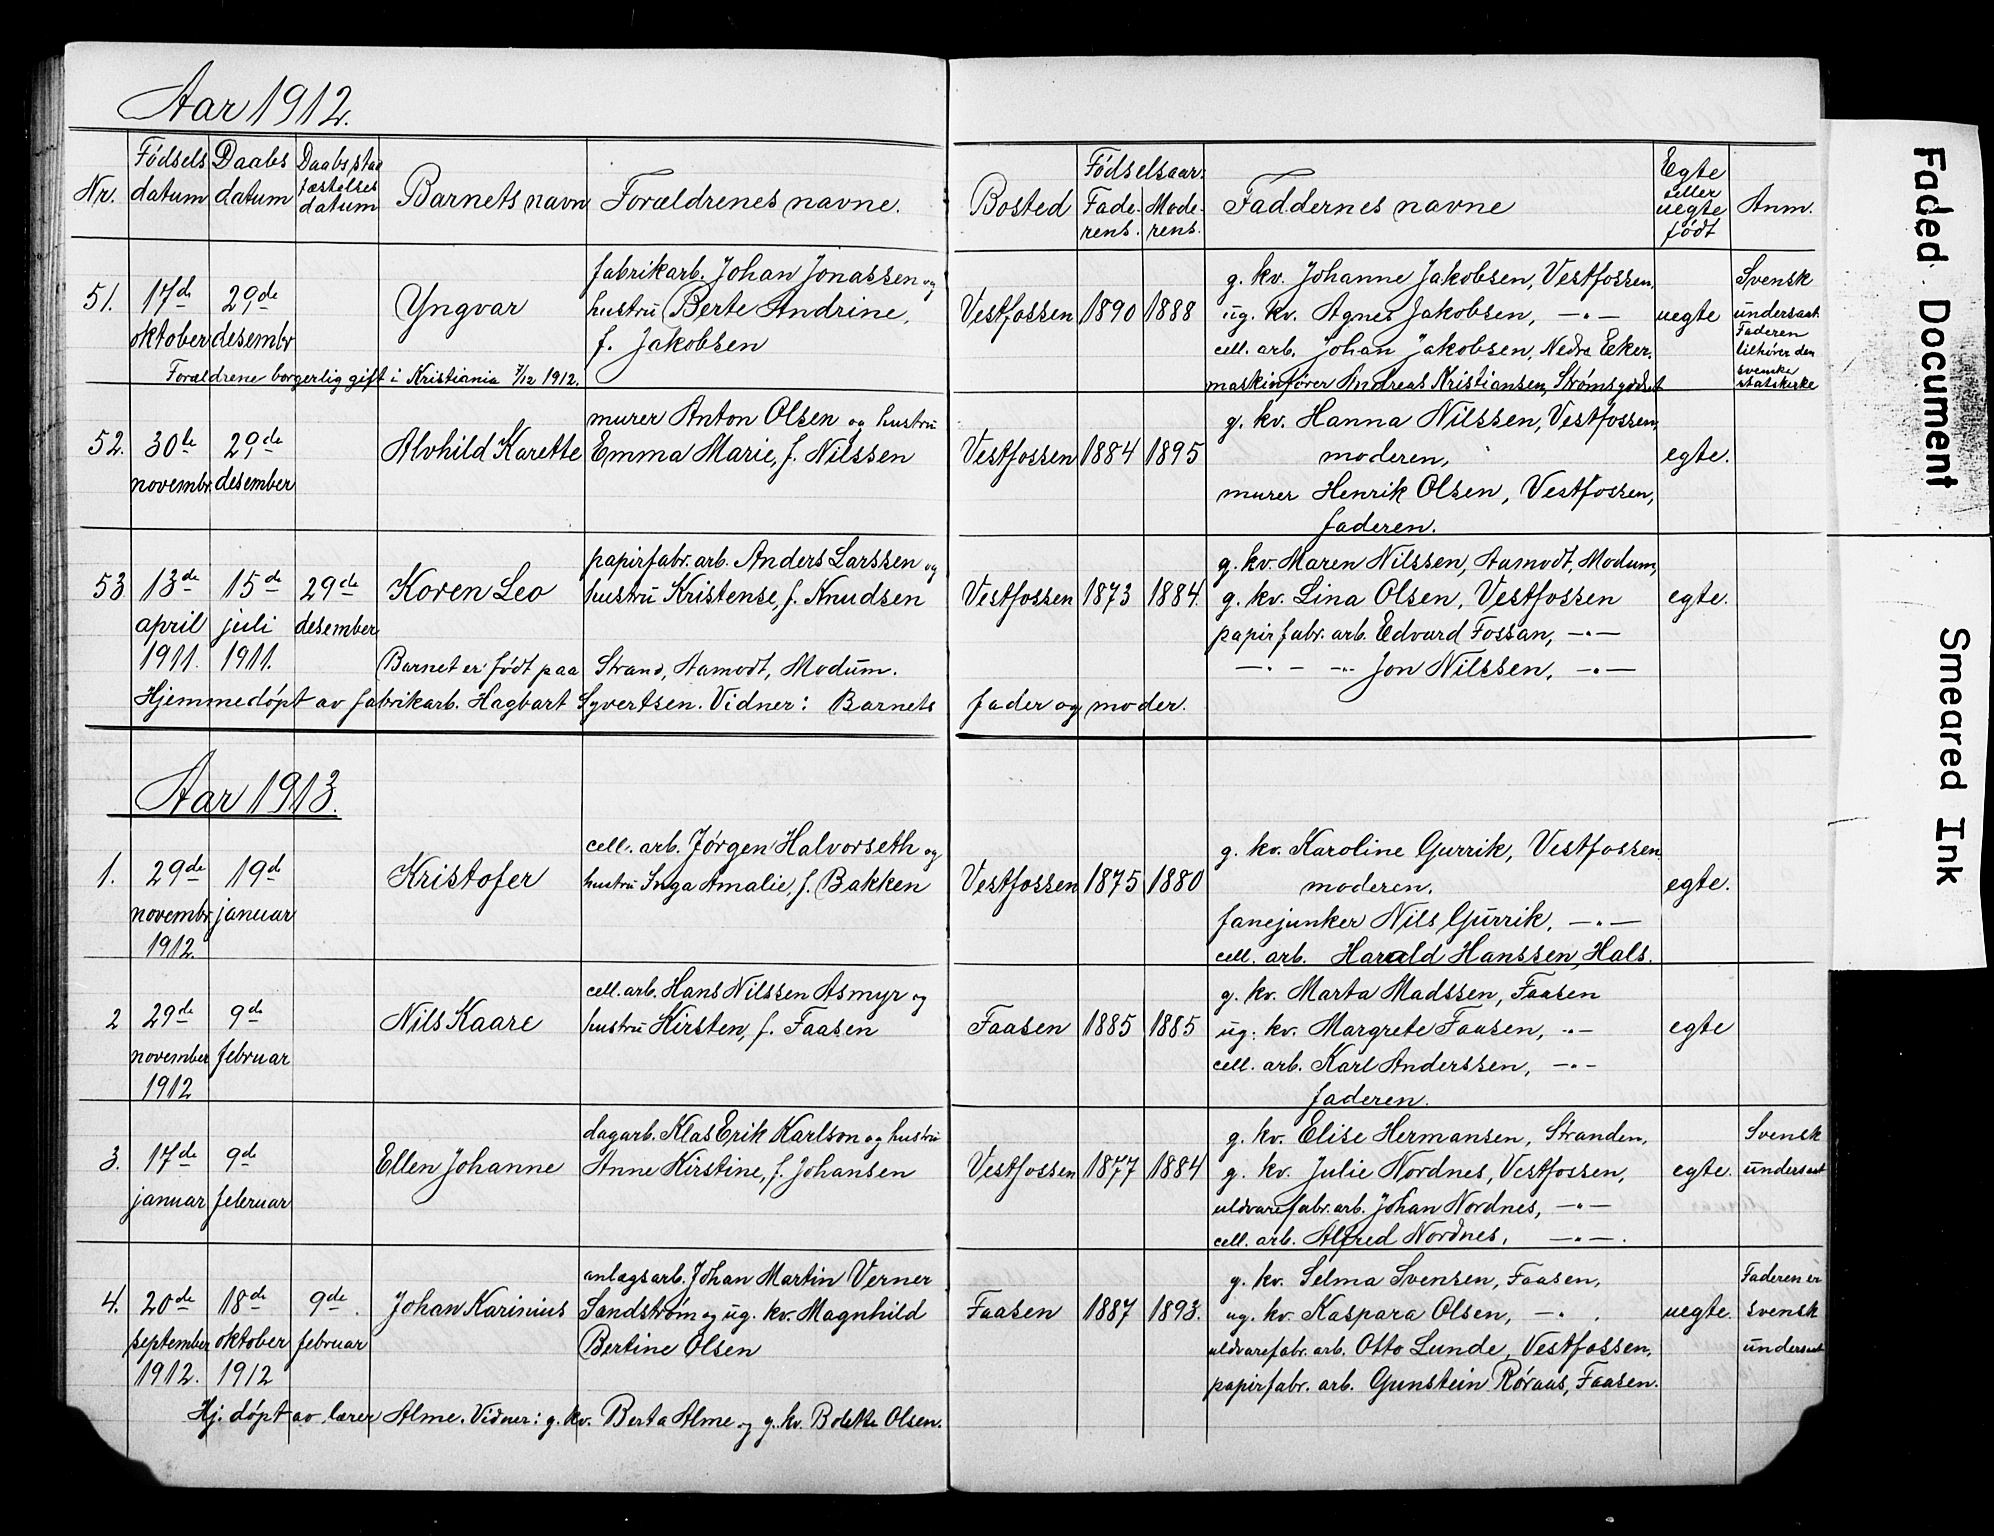 Aar 1912.
Nr. Fødsels datum Daabs datum Daabsstad fæstelses datum Barnets navn Forældrenes navne. Bosted Fødselsaar: Faderens. Moderens. Faddernes navne Egte eller uegte født Anm.
51. 17de oktober 29de desembr Yngvar
fabrikarb. Johan Jonassen og
hustru Berte Andrine,
f. Jakobsen
Forældrene borgerlig gift i Kristiania 7/12 1912.
Vestfossen 1890 1888
g. kv. Johanne Jakobsen, Vestfossen,
ug. kv. Agnes Jakobsen, —"—
cell. arb. Johan Jakobsen, Nedre Eker,
maskinfører Andreas Kristiansen, Strømsgodset
uegte
Svensk
undersaat.
Faderen
tilhører den
svenske
statskirke
52. 30te novembr. 29de desember Alvhild Karette
murer Anton Olsen og hustru
Emma Marie, f. Nilssen
Vestfossen 1884 1895
g. kv. Hanna Nilssen, Vestfossen,
moderen,
murer Henrik Olsen, Vestfossen,
faderen.
egte.
53 13de april 1911. 15de juli 1911. 29de desember Koren Leo
papirfabr. arb. Anders Larssen og
hustru Kristense, f. Knudsen
Vestfossen 1873 1884.
g. kv. Maren Nilssen, Aamodt, Modum,
g. kv. Lina Olsen, Vestfossen
papirfabr. arb. Edvard Fossan, —"—
—"— —"— Jon Nilssen, —"—
egte.
Barnet er født paa Strand, Aamodt, Modum.
Hjemmedøpt av fabrikarb. Hagbart Syvertsen. Vidner: Barnets fader og moder.
Aar 1913.
1. 29de novembr 1912. 19de januar Kristofer
cell. arb. Jørgen Halvorseth og
hustru Inga Amalie, f. Bakken
Vestfossen 1875 1880
g. kv. Karoline Gurrik, Vestfossen
moderen.
fanejunker Nils Gurrik, —"—
cell. arb. Harald Hanssen, Hals.
egte.
2 29de november 1912 9de februar Nils Kaare
cell. arb. Hans Nilssen Asmyr og
hustru Kirsten, f. Faasen
Faasen 1885 1885
g. kv. Marta Madssen, Faasen
ug. kv. Margrete Faasen, —"—
cell. arb. Karl Anderssen, —"—
faderen.
egte
3. 17de januar 9de februar Ellen Johanne
dagarb. Klas Erik Karlson og hustru
Anne Kirstine, f. Johansen
Vestfossen 1877 1884
g. kv. Elise Hermansen, Stranden,
g. kv. Julie Nordnes, Vestfossen,
uldvarefabr. arb. Johan Nordnes, —"—
cell. arb. Alfred Nordnes, —"—.
egte.
Svensk
undersaat
4. 20de september 1912. 18de oktober 1912 9de februar Johan Karinius
anlægsarb. Johan Martin Verner
Sandstrøm og ug. kv. Magnhild
Bertine Olsen
Faasen 1887 1893.
g. kv. Selma Svensen, Faasen,
ug. kv. Kaspara Olsen, —"—
uldvarefabr. arb. Otto Lunde, Vestfossen,
papirfabr. arb. Gunstein Røraas, Faasen.
uegte.
Faderen er
svensk
undersaat
Hj. døpt av lærer Alme. Vidner: g. kv. Berta Alme og g. kv. Bolette Olsen.
Faded Document
Smeared Ink